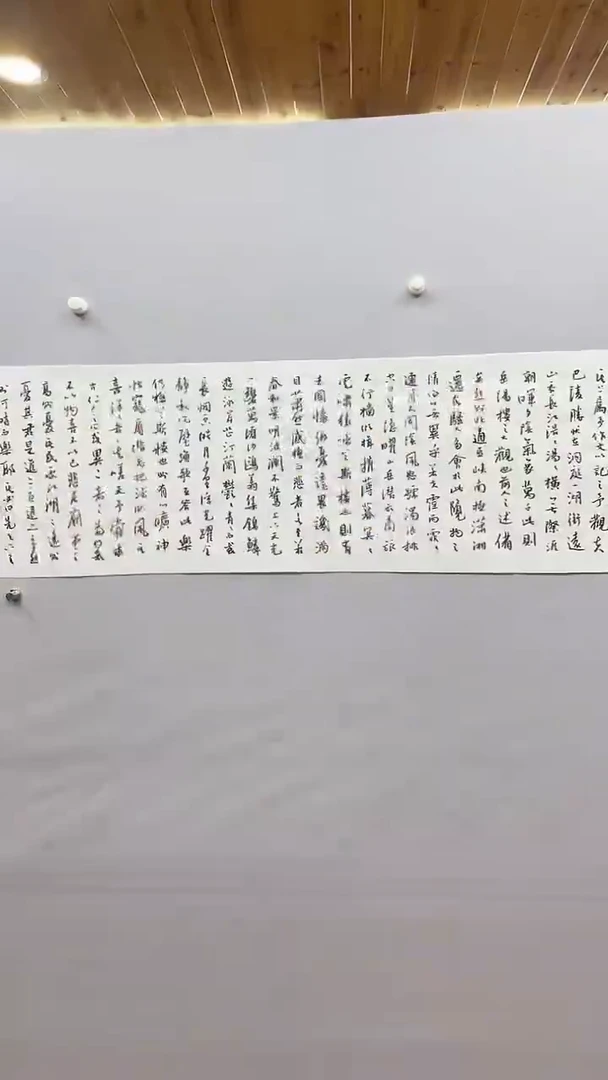 屬予作文以記之予觀夫
巴陵勝狀在洞庭一湖銜遠
山吞長江浩浩湯湯橫無際涯
朝暉夕陰氣象萬千此則
岳陽樓之大觀也前人之述備
矣然則北通巫峽南極瀟湘
遷客騷人多會於此覽物之
情得無異乎若夫霪雨霏霏
連月不開陰風怒號濁浪排
空日星隱曜山岳潛形商旅
不行檣傾楫摧薄暮冥冥
虎嘯猿啼登斯樓也則有
去國懷鄉憂讒畏譏滿
目蕭然感極而悲者矣至若
春和景明波瀾不驚上下天光
一碧萬頃沙鷗翔集錦鱗
游泳岸芷汀蘭鬱鬱青青而或
長煙一空皓月千里浮光躍金
靜影沉璧漁歌互答此樂
何極登斯樓也則有心曠神
怡寵辱偕忘把酒臨風其
喜洋洋者矣嗟夫予嘗求
古仁人之心或異二者之為何哉
不以物喜不以己悲居廟堂之
高則憂其民處江湖之遠則
憂其君是進亦憂退亦憂
何時而樂耶其必曰先天下之